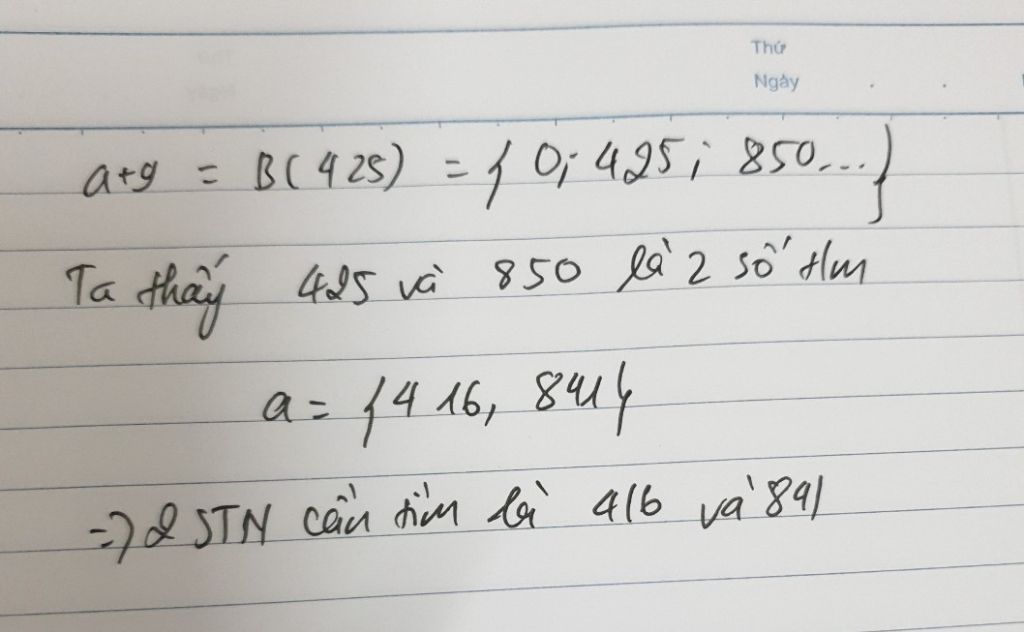 Thứ
Ngày
a+9 = B(425) = { 0; 425; 850...}
Ta thấy 425 và 850 là 2 số tm
a = {416, 841}
=> 2 STN cần tìm là 416 và 841